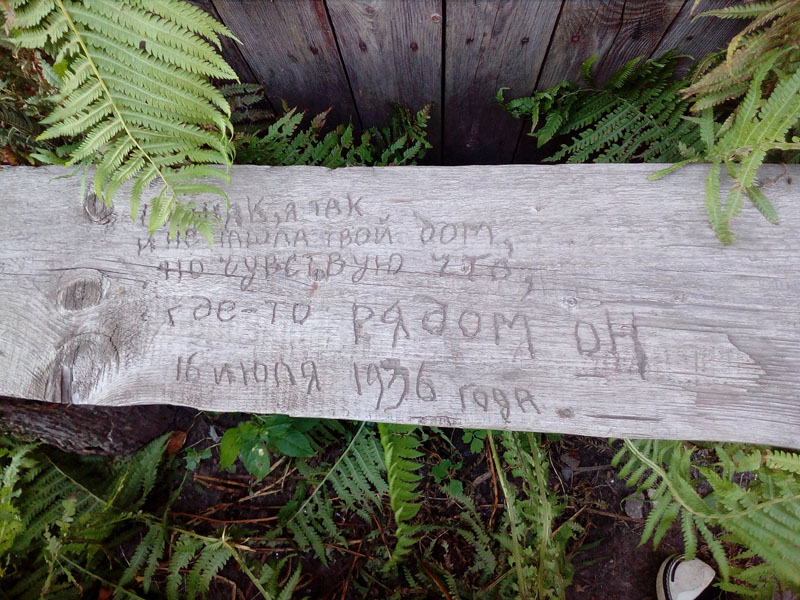 я так
и не нашла твой дом,
но чувствую что,
где-то рядом он
16 июля 1936 года